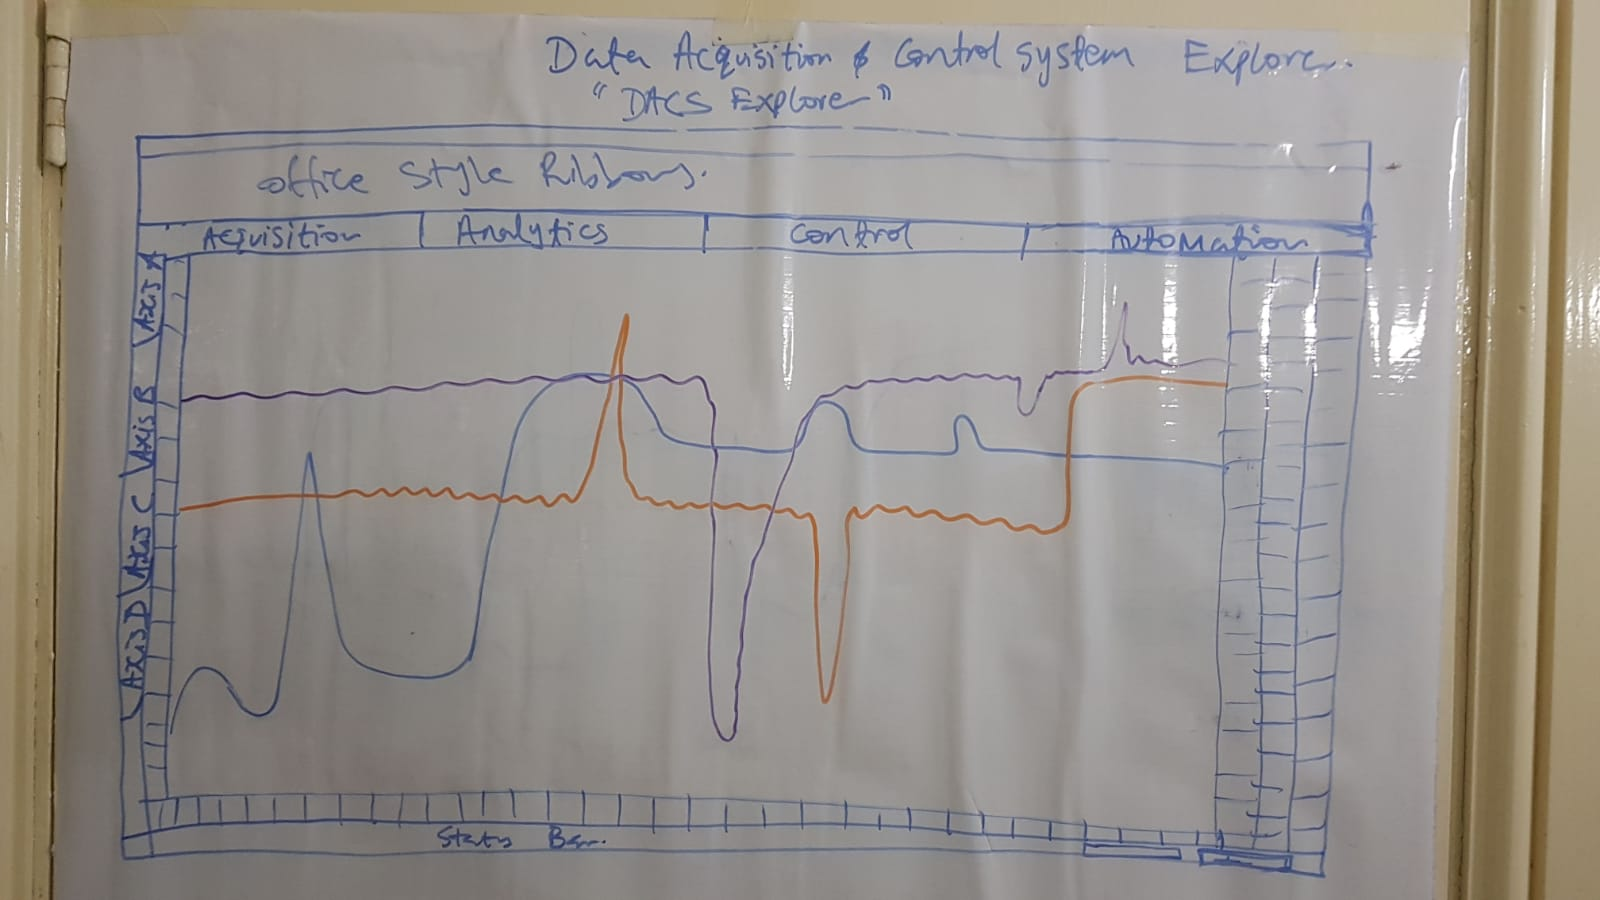 Data Acquisition & Control System Explore..
"DACS Explorer"
Office Style Ribbons.
Acquisition Analytics Control Automation
Axis A
Axis B
Axis C
Axis D
Status Bar.